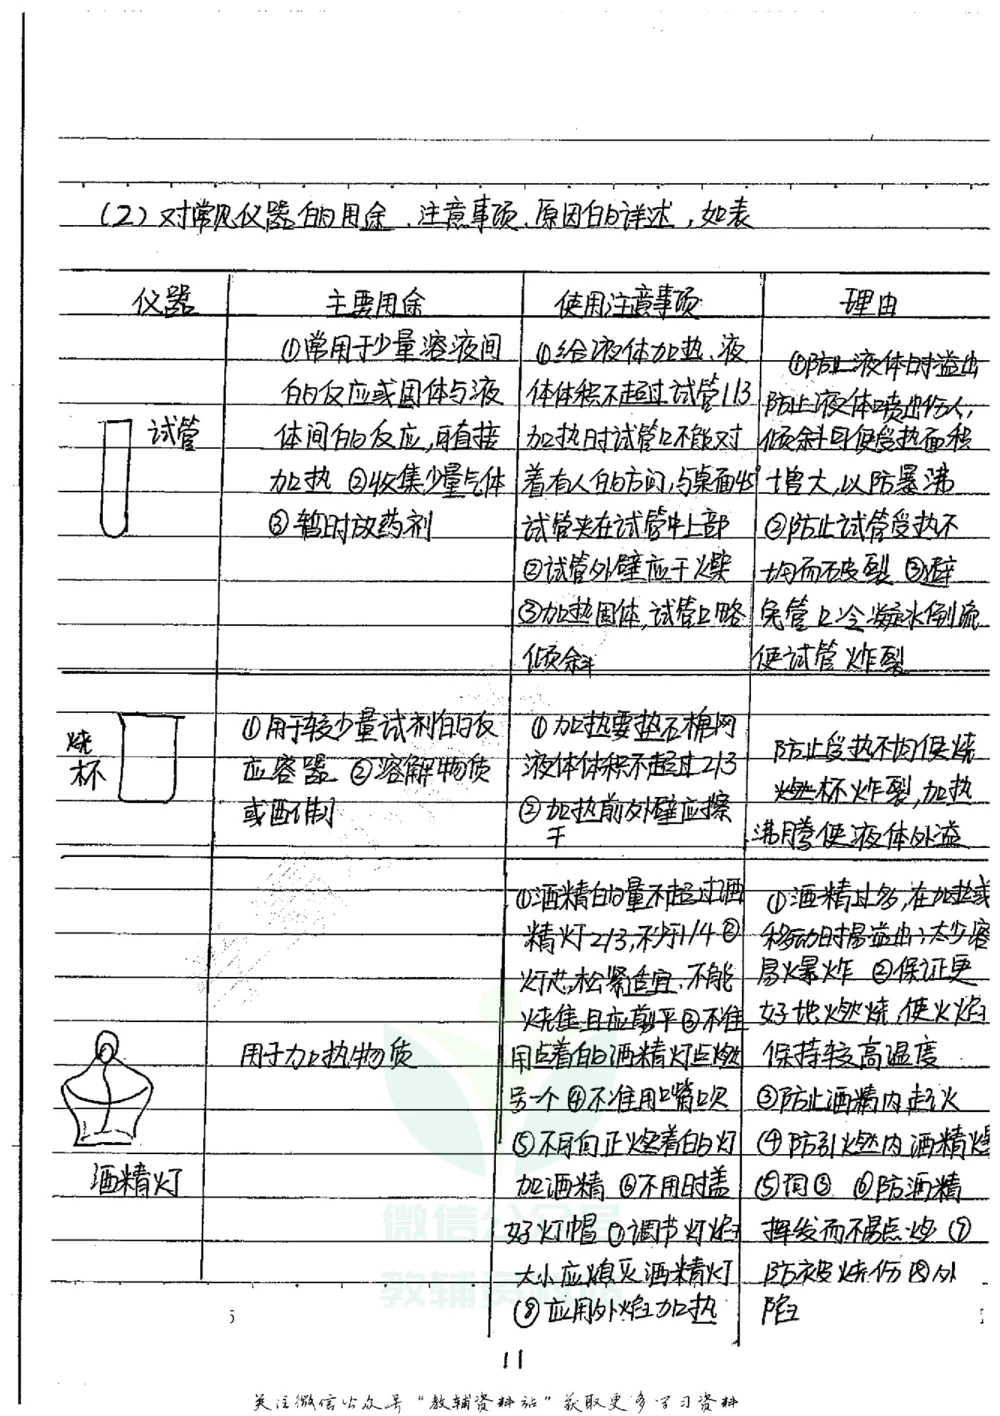 (2)对常见仪器的用途、注意事项、原因的详述,如表
仪器 主要用途 使用注意事项 理由
试管
①常用于少量溶液间
的反应或固体与液
体间的反应,可直接
加热 ②收集少量气体
③暂时放药剂
①给液体加热、液
体体积不超过试管1/3
加热时试管口不能对
着有人的方向,与桌面45°
试管夹在试管中上部
②试管外壁应干燥
③加热固体,试管口略
倾斜
①防止液体时溢出
防止液体喷出伤人,
倾斜可使受热面积
增大,以防暴沸
②防止试管受热不
均而破裂 ③避
免管口冷凝水倒流
使试管炸裂
烧
杯
①用于较少量试剂的反
应容器 ②溶解物质
或配制
①加热要垫石棉网
液体体积不超过2/3
②加热前外壁应擦
干
防止受热不均使烧
杯炸裂,加热
沸腾使液体外溢
酒精灯
用于加热物质
①酒精的量不超过酒
精灯2/3,不少于1/4 ②
灯芯,松紧适宜、不能
烧焦且应剪平 ③不准
用点着的酒精灯点燃
另一个 ④不准用嘴吹
⑤不可向正燃着的灯
加酒精 ⑥不用时盖
好灯帽 ⑦调节灯焰
大小应熄灭酒精灯
⑧应用外焰加热
①酒精过多,在加热或
移动时易溢出;太少容
易爆炸 ②保证更
好地燃烧,使火焰
保持较高温度
③防止酒精内起火
④防引燃内酒精燃
⑤同③ ⑥防酒精
挥发而不易点燃 ⑦
防被烧伤 ⑧外
焰
5
11
关注微信公众号"教辅资料站"获取更多学习资料
微信公众号
教辅资料站